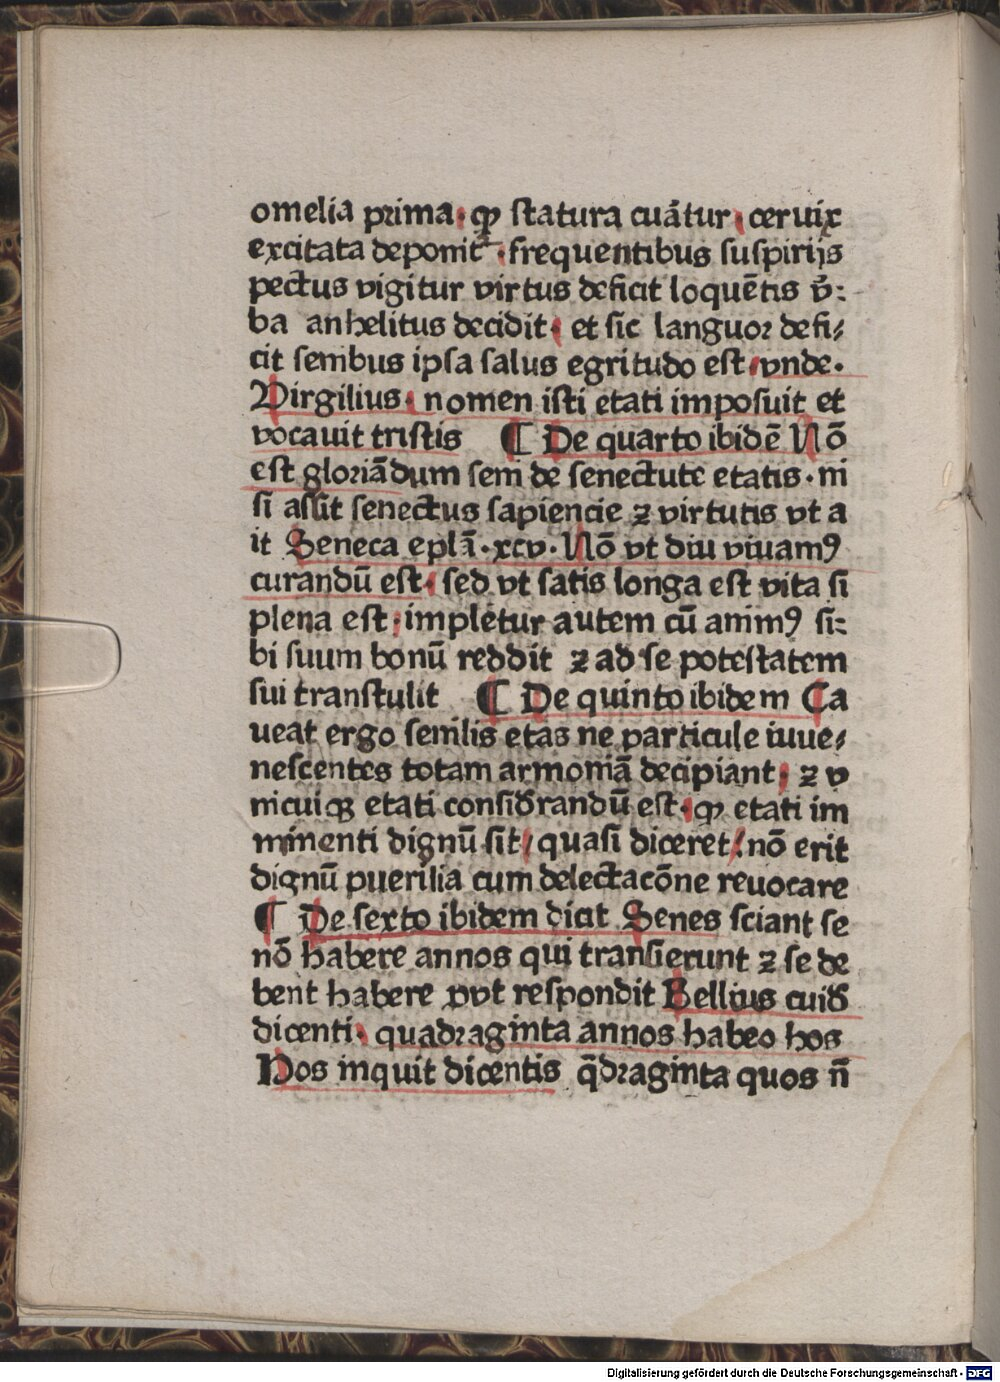 omelia prima· ꝙ statura cuãtur· ceruix
excitata deponit᷑ ·frequentibus suspirijs
pectus vigitur virtus deficit loquẽtis v̉:
ba anhelitus decidit· et sic languor defi⸗
cit senibus ipsa salus egritudo est· vnde·
Virgilius· nomen isti etati imposuit et
vocauit tristis ¶ De quarto ibidẽ Nõ
est gloriãdum seni de senectute etatis· ni
si assit senectus sapiencie ⁊ virtutis vt a
it Seneca eplã·xcv· Nõ vt diu viuamꝰ
curandũ est· sed vt satis longa est vita si
plena est· impletur autem cũ animꝰ si:
bi suum bonũ reddit ⁊ ad se potestatem
sui transtulit ¶ De quinto ibidem Ca
ueat ergo senilis etas ne particule iuue⸗
nescentes totam armoniã decipiant· ⁊ v
nicuiqꝫ etati considrandũ est· ꝙ etati im
minenti dignũ sit/ quasi diceret/· nõ erit
dignũ puerilia cum delectacõne reuocare
¶ De sexto ibidem dicit Senes sciant se
nõ habere annos qui transierunt ⁊ se de
bent habere vvt respondit Bellius cuid
dicenti· quadraginta annos habeo hos
Hos inquit dicentis q̃draginta quos ñ
Digitalisierung gefördert durch die Deutsche Forschungsgemeinschaft - DFG